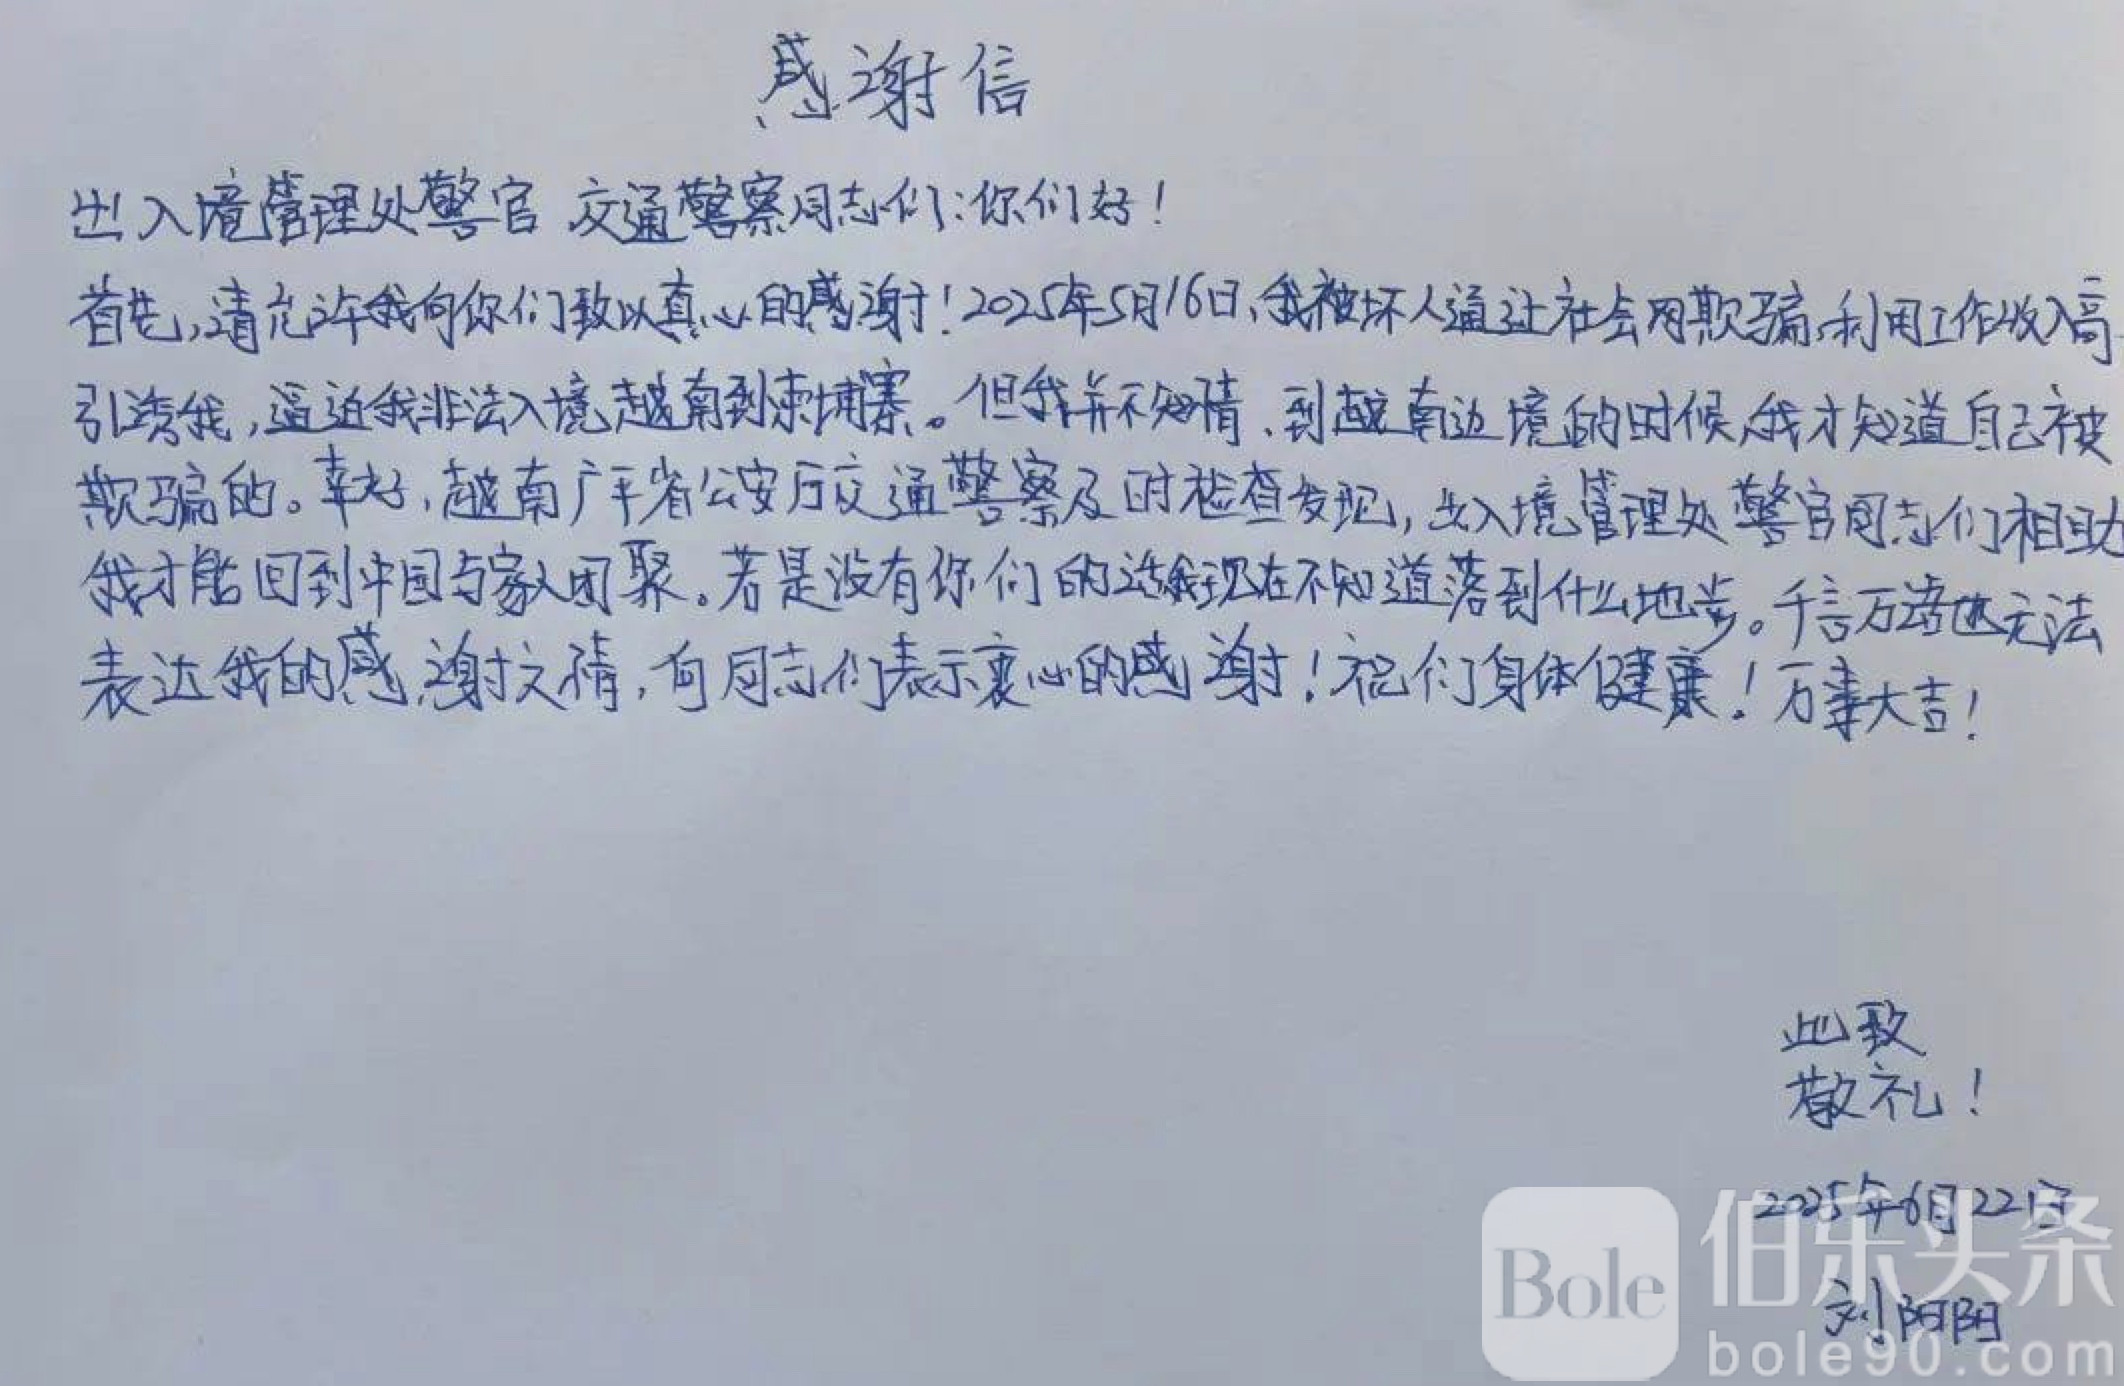 感谢信
出入境管理处警官 交通警察同志们:你们好!
首先,请允许我向你们致以真心的感谢!2025年5月16日、我被坏人通过社会网欺骗,利用工作收入高
引诱我,逼迫我非法入境越南到柬埔寨。但我并不知情、到越南边境的时候,我才知道自己被
欺骗的。幸好,越南广平省公安厅交通警察及时检查发现,出入境管理处警官同志们相助
我才能回到中国与家人团聚。若是没有你们的话我现在不知道落到什么地步。千言万语也无法
表达我的感谢文情,向同志们表示衷心的感谢!祝们身体健康!万事大吉!
此致
敬礼!
2025年6月22日
刘阳阳
Bole 伯乐头条
bole90.com